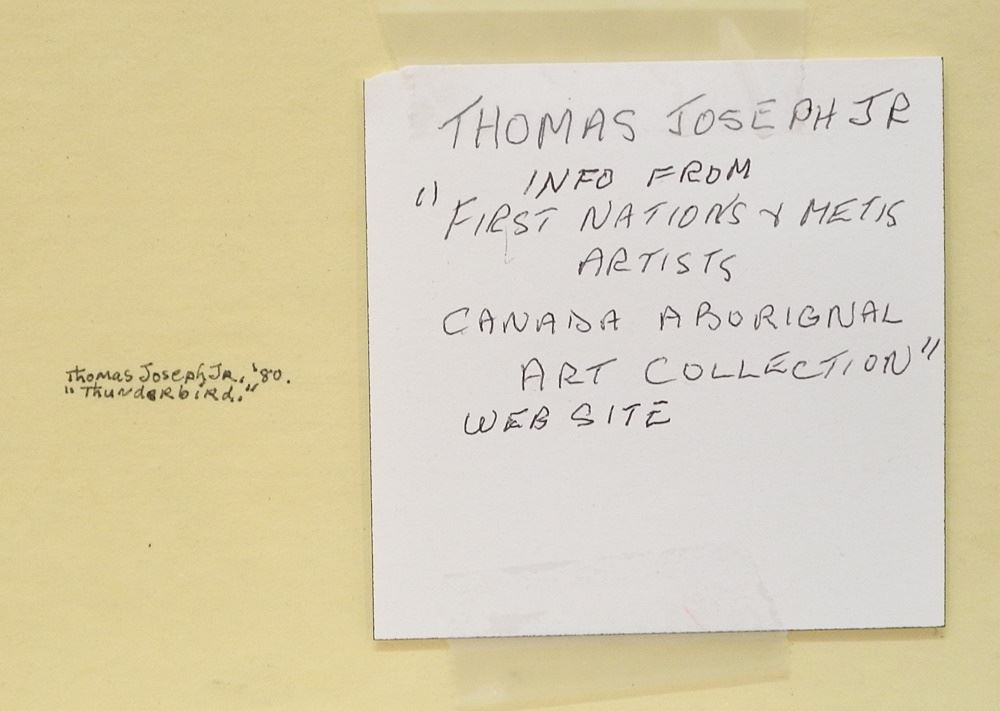 Thomas Joseph Jr., '80.
"Thunderbird."
THOMAS JOSEPH JR
INFO FROM
"FIRST NATIONS & METIS
ARTISTS
CANADA ABORIGNAL
ART COLLECTION"
WEB SITE